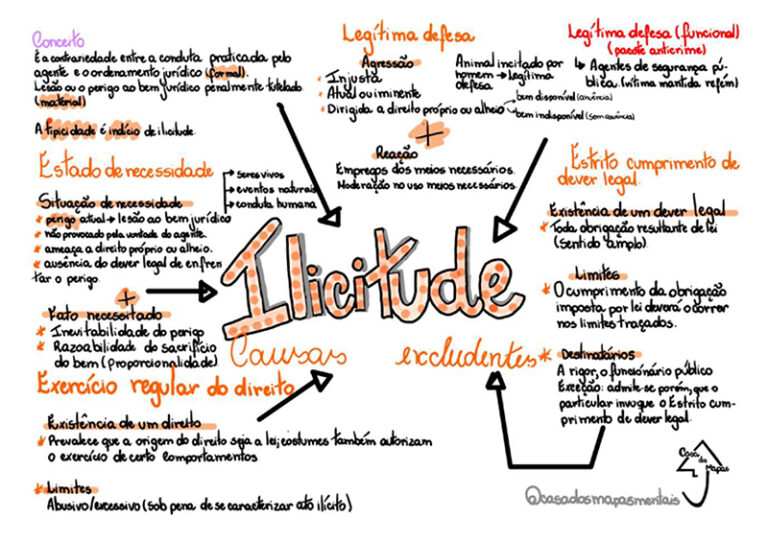 Conceito
É a contrariedade entre a conduta praticada pelo
agente e o ordenamento jurídico (formal).
Lesão ou o perigo ao bem jurídico penalmente tutelado
(material)
A tipicidade é indício de ilicitude.
Legítima defesa
Agressão
* Injusta
* Atual ou iminente
* Dirigida a direito próprio ou alheio
Animal incitado por
homem → legítima
defesa
bem disponível (anuência)
bem indisponível (sem anuência)
+
Reação
Empregos dos meios necessários.
Moderação no uso meios necessários.
Legítima defesa (funcional)
(pacote anticrime)
↳ Agentes de segurança pú-
blica (vítima mantida refém)
Estado de necessidade
Situação de necessidade
→ seres vivos
→ eventos naturais
→ conduta humana
* perigo atual → lesão ao bem jurídico
* não provocado pela vontade do agente.
* ameaça a direito próprio ou alheio.
* ausência do dever legal de enfren
tar o perigo.
+
Fato necessitado
* Inevitabilidade do perigo
* Razoabilidade do sacrifício
do bem (proporcionalidade)
Ilicitude
Causas excludentes
Estrito cumprimento de
dever legal.
Existência de um dever legal
* Toda obrigação resultante de lei
(sentido amplo).
Limites
* O cumprimento da obrigação
imposta por lei deverá ocorrer
nos limites traçados.
* Destinatários
A rigor, o funcionário público
Exceção: admite-se porém, que o
particular invoque o Estrito cum-
primento de dever legal.
Exercício regular do direito
Existência de um direito
* Prevalece que a origem do direito seja a lei; costumes também autorizam
o exercício de certo comportamentos.
* Limites
Abusivo/excessivo (sob pena de se caracterizar ato ilícito)
Casa
dos
Mapas
@casadosmapasmentais